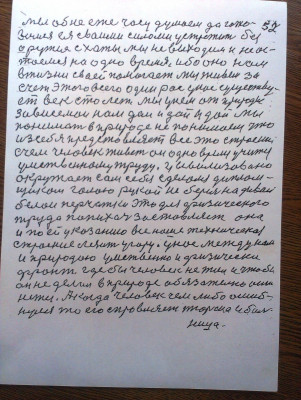 мы обнее же часу думаем до гото- 52
вения ея своими силами устроить без
оружия с хаты мы не выходим и не ос-
таемся на одно время, ибо оно нам
в жизни своей помогает мы живем за
счет Этого всего один раз, уное существу-
ет век сто лет. мы умем от природы
Зависемой нам дай и дай и дай мы
понимать в природе не понимаем что
из себя представляет все это строение,
с чем человек живет он одно время учит
умственному труду, цивилизовано
окружает сам себя сделался диплом-
щиком голою рукой не берись надевай
белои перчатки Это для физического
труда попихач заставляет она
и по ей указанию все наше техническая
строение летит угору. уное между нами
и природою умственно и физически
фронт где бы человек не жил и чтобы
он не делал в природе обязательно оши-
нется. А когда человек чем либо ошиб-
нулся то его справляет тюрьма и боль-
ница.